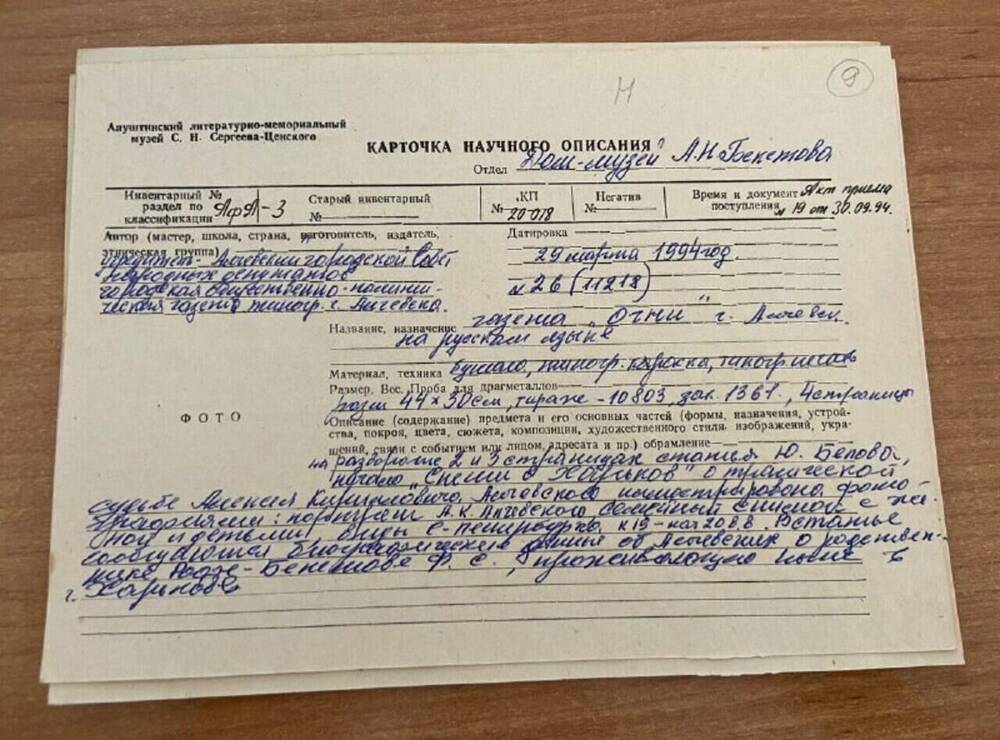 Н
9
Алуштинский литературно-мемориальный
музей С. Н. Сергеева-Ценского
КАРТОЧКА НАУЧНОГО ОПИСАНИЯ
Отдел „Дом-музей" А.Н Бекетова
Инвентарный №
раздел по
классификации АфА-3
Старый инвентарный
№
КП
№ 20 018
Негатив
№
Время и документ Акт приема
поступления № 19 от 30.09.94.
Автор (мастер, школа, страна, изготовитель, издатель,
этническая группа)
Учредитель - Алчевский городской Совет
народных депутатов
городская общественно-полити-
ческая газета типогр. г. Алчевска.
Датировка
29 марта 1994 год.
№ 26 (11218)
Название, назначение газета „Огни" г. Алчевск.
на русском языке
Материал, техника бумага, типогр. краска, типогр. печать
Размер. Вес. Проба для драгметаллов
разм 44 × 30 см, тираж - 10803, зак. 1361, 4 страницы
ФОТО
Описание (содержание) предмета и его основных частей (формы, назначения, устрой-
ства, покроя, цвета, сюжета, композиции, художественного стиля изображений, укра-
шений, связи с событием или лицом, адресата и пр.) обрамление
на развороте 2 и 3 страницах статья Ю. Белова,
начало „ в Харьков" о трагической
судьбе Алексея Кирилловича Алчевского иллюстрирована фото-
графиями: портрет А. К. Алчевского семейный снимок с же-
ной и детьми, виды С-петербурга к 19 - нач 20 в в. В статье
сообщаются биографические данные об Алчевских о родствен-
нике Бекетове Ф. С., проживающего ныне в
г. Харькове